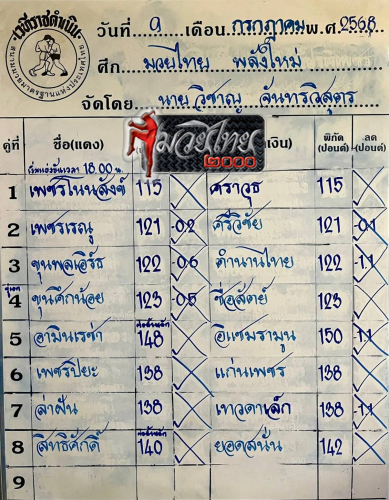 เวทีราชดำเนิน
สนามมวยมาตรฐานแห่งประเทศไทย
วันที่ 9 เดือน กรกฎาคม พ.ศ. 2568
ศึก มวยไทย พลังใหม่
จัดโดย นายวิชาญ จันทรวิสุตร
มวยไทย
๒๐๐๐
คู่ที่ ชื่อ(แดง) เงิน) พิกัด (ปอนด์) ลด (ปอนด์)
เริ่มแข่งขันเวลา 18.00 น.
1 เพชรโนนสังข์ 115 ศราวุธ 115
2 เพชรเรณู 121 -0.2 ศรีวิชัย 121 -0.1
3 ขุนพลเอิร์ธ 122 -0.6 ตำนานไทย 122 -1.1
คู่เอก
4 ขุนศึกน้อย 123 -0.5 ซื่อสัตย์ 123
5 อามินเรซ่า 148 อิแซมรามูน 150 -1.1
6 เพชรปิยะ 138 แก่นเพชร 138
7 ล่าฝัน 138 เทวดาเล็ก 138 -1.1
8 สิทธิศักดิ์ 140 ยอดสนั่น 142
9